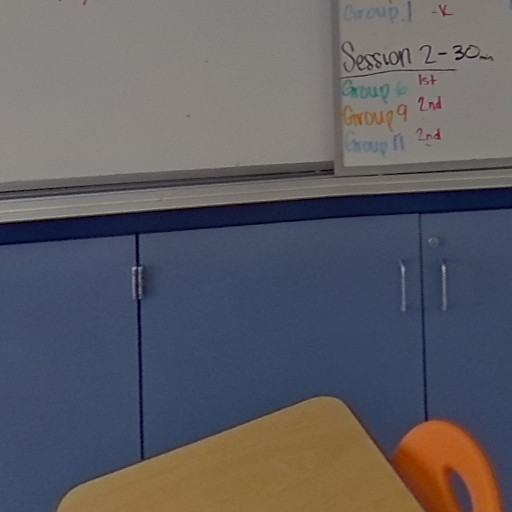 Group 1 -K
Session 2-30min
Group 6 1st
Group 9 2nd
Group 11 2nd